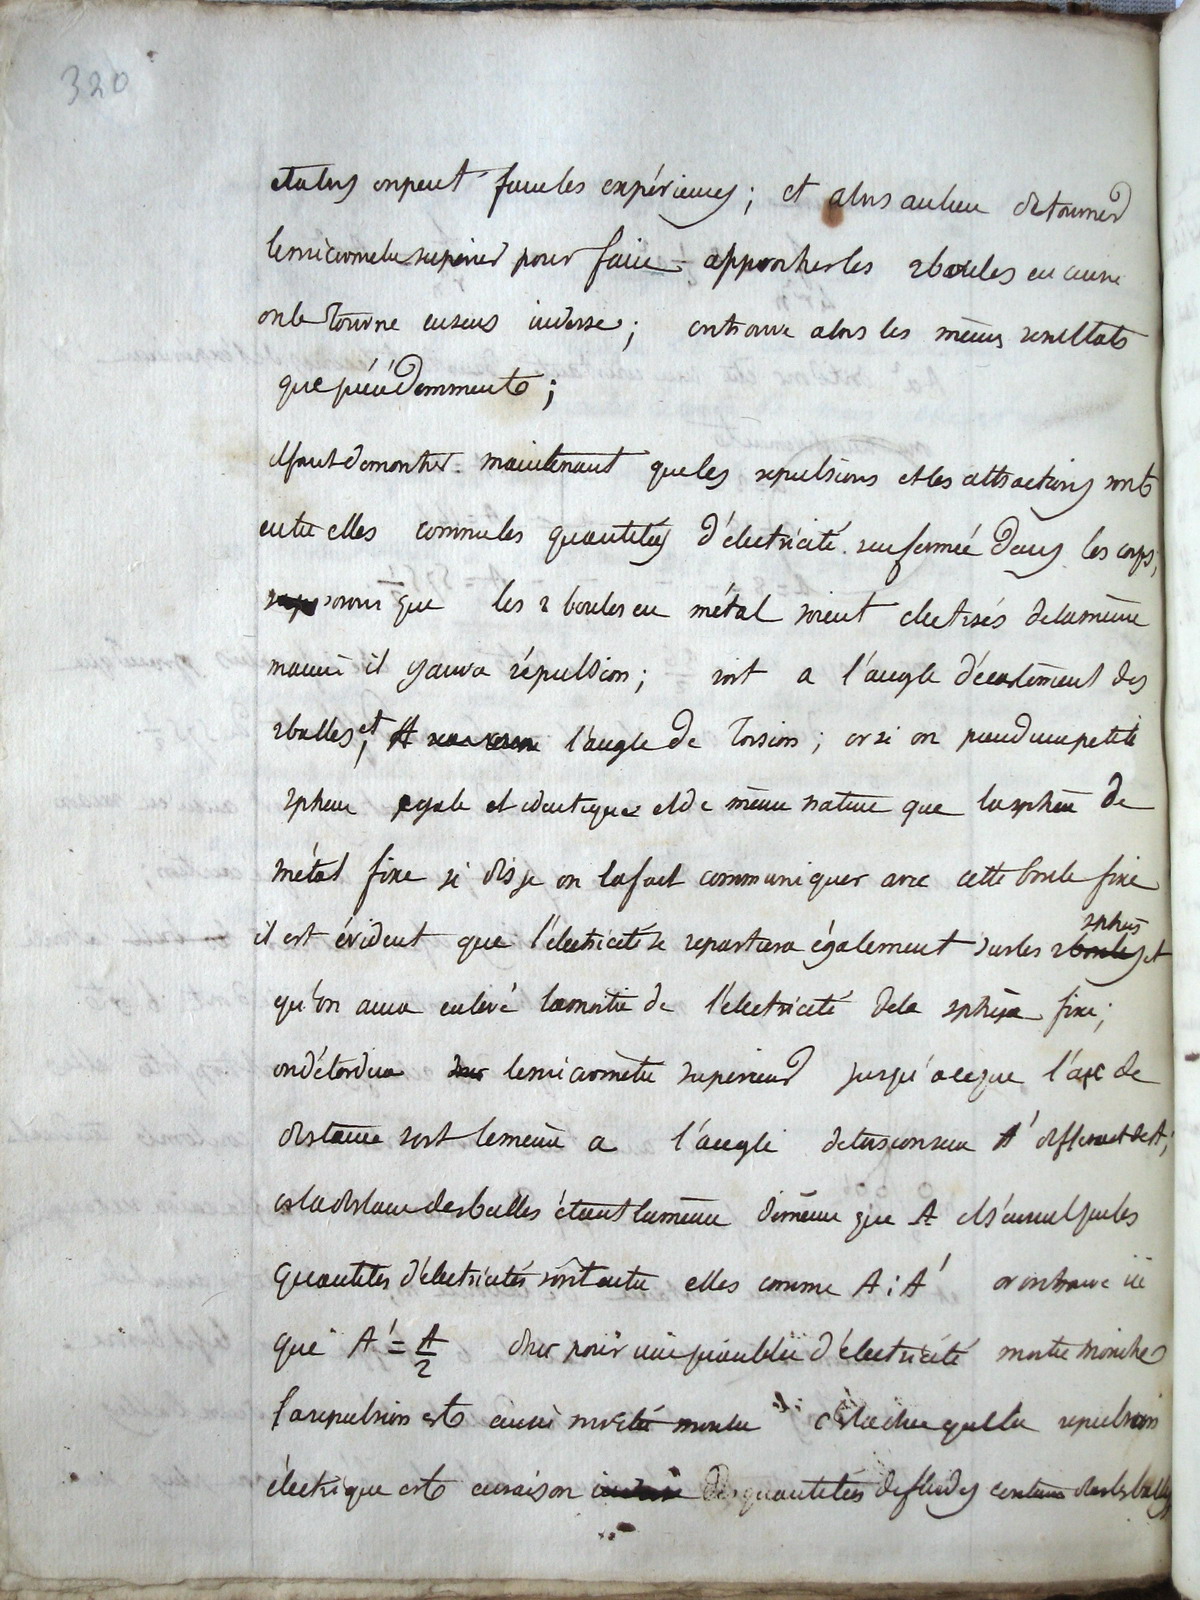 320
et alors on peut faire les expériences ; et alors au lieu de tourner
le micrometre superieur pour faire approcher les 2 boules en cuivre
on le tourne en sens inverse ; on trouve alors les mêmes resultats
que précédemment ;
il faut demontrer maintenant que les repulsions et les attractions sont
entre elles comme les quantités d'électricité renfermée dans les corps,
supposons que les 2 boules en métal soient electrisés de la même
maniere il y aura répulsion ; soit a l'angle d'écartement des
2 balles, et A l'angle de torsion ; or si on prend une petite
sphere egale et identique et de même nature que la sphere de
métal fixe si dis je on la fait communiquer avec cette boule fixe
il est évident que l'électricité se repartira également sur les 2 boules spheres et
qu'on aura enlevé la moitie de l'électricité de la sphère fixe ;
on détordra le micromètre superieur jusqu'a ce que l'arc de
distance soit le meme a l'angle de torsion sera A' different de A ;
or la distance des balles étant la même de même que A il s'ensuit que les
quantites d'électricités sont entre elles comme A : A' or on trouve ici
que A' = A/2 donc pour une quantité d'électricité moitie moindre
la repulsion est aussi moitié moindre c'est a dire que la repulsion
électrique est en raison inverse des quantités de fluides contenu dans les balles